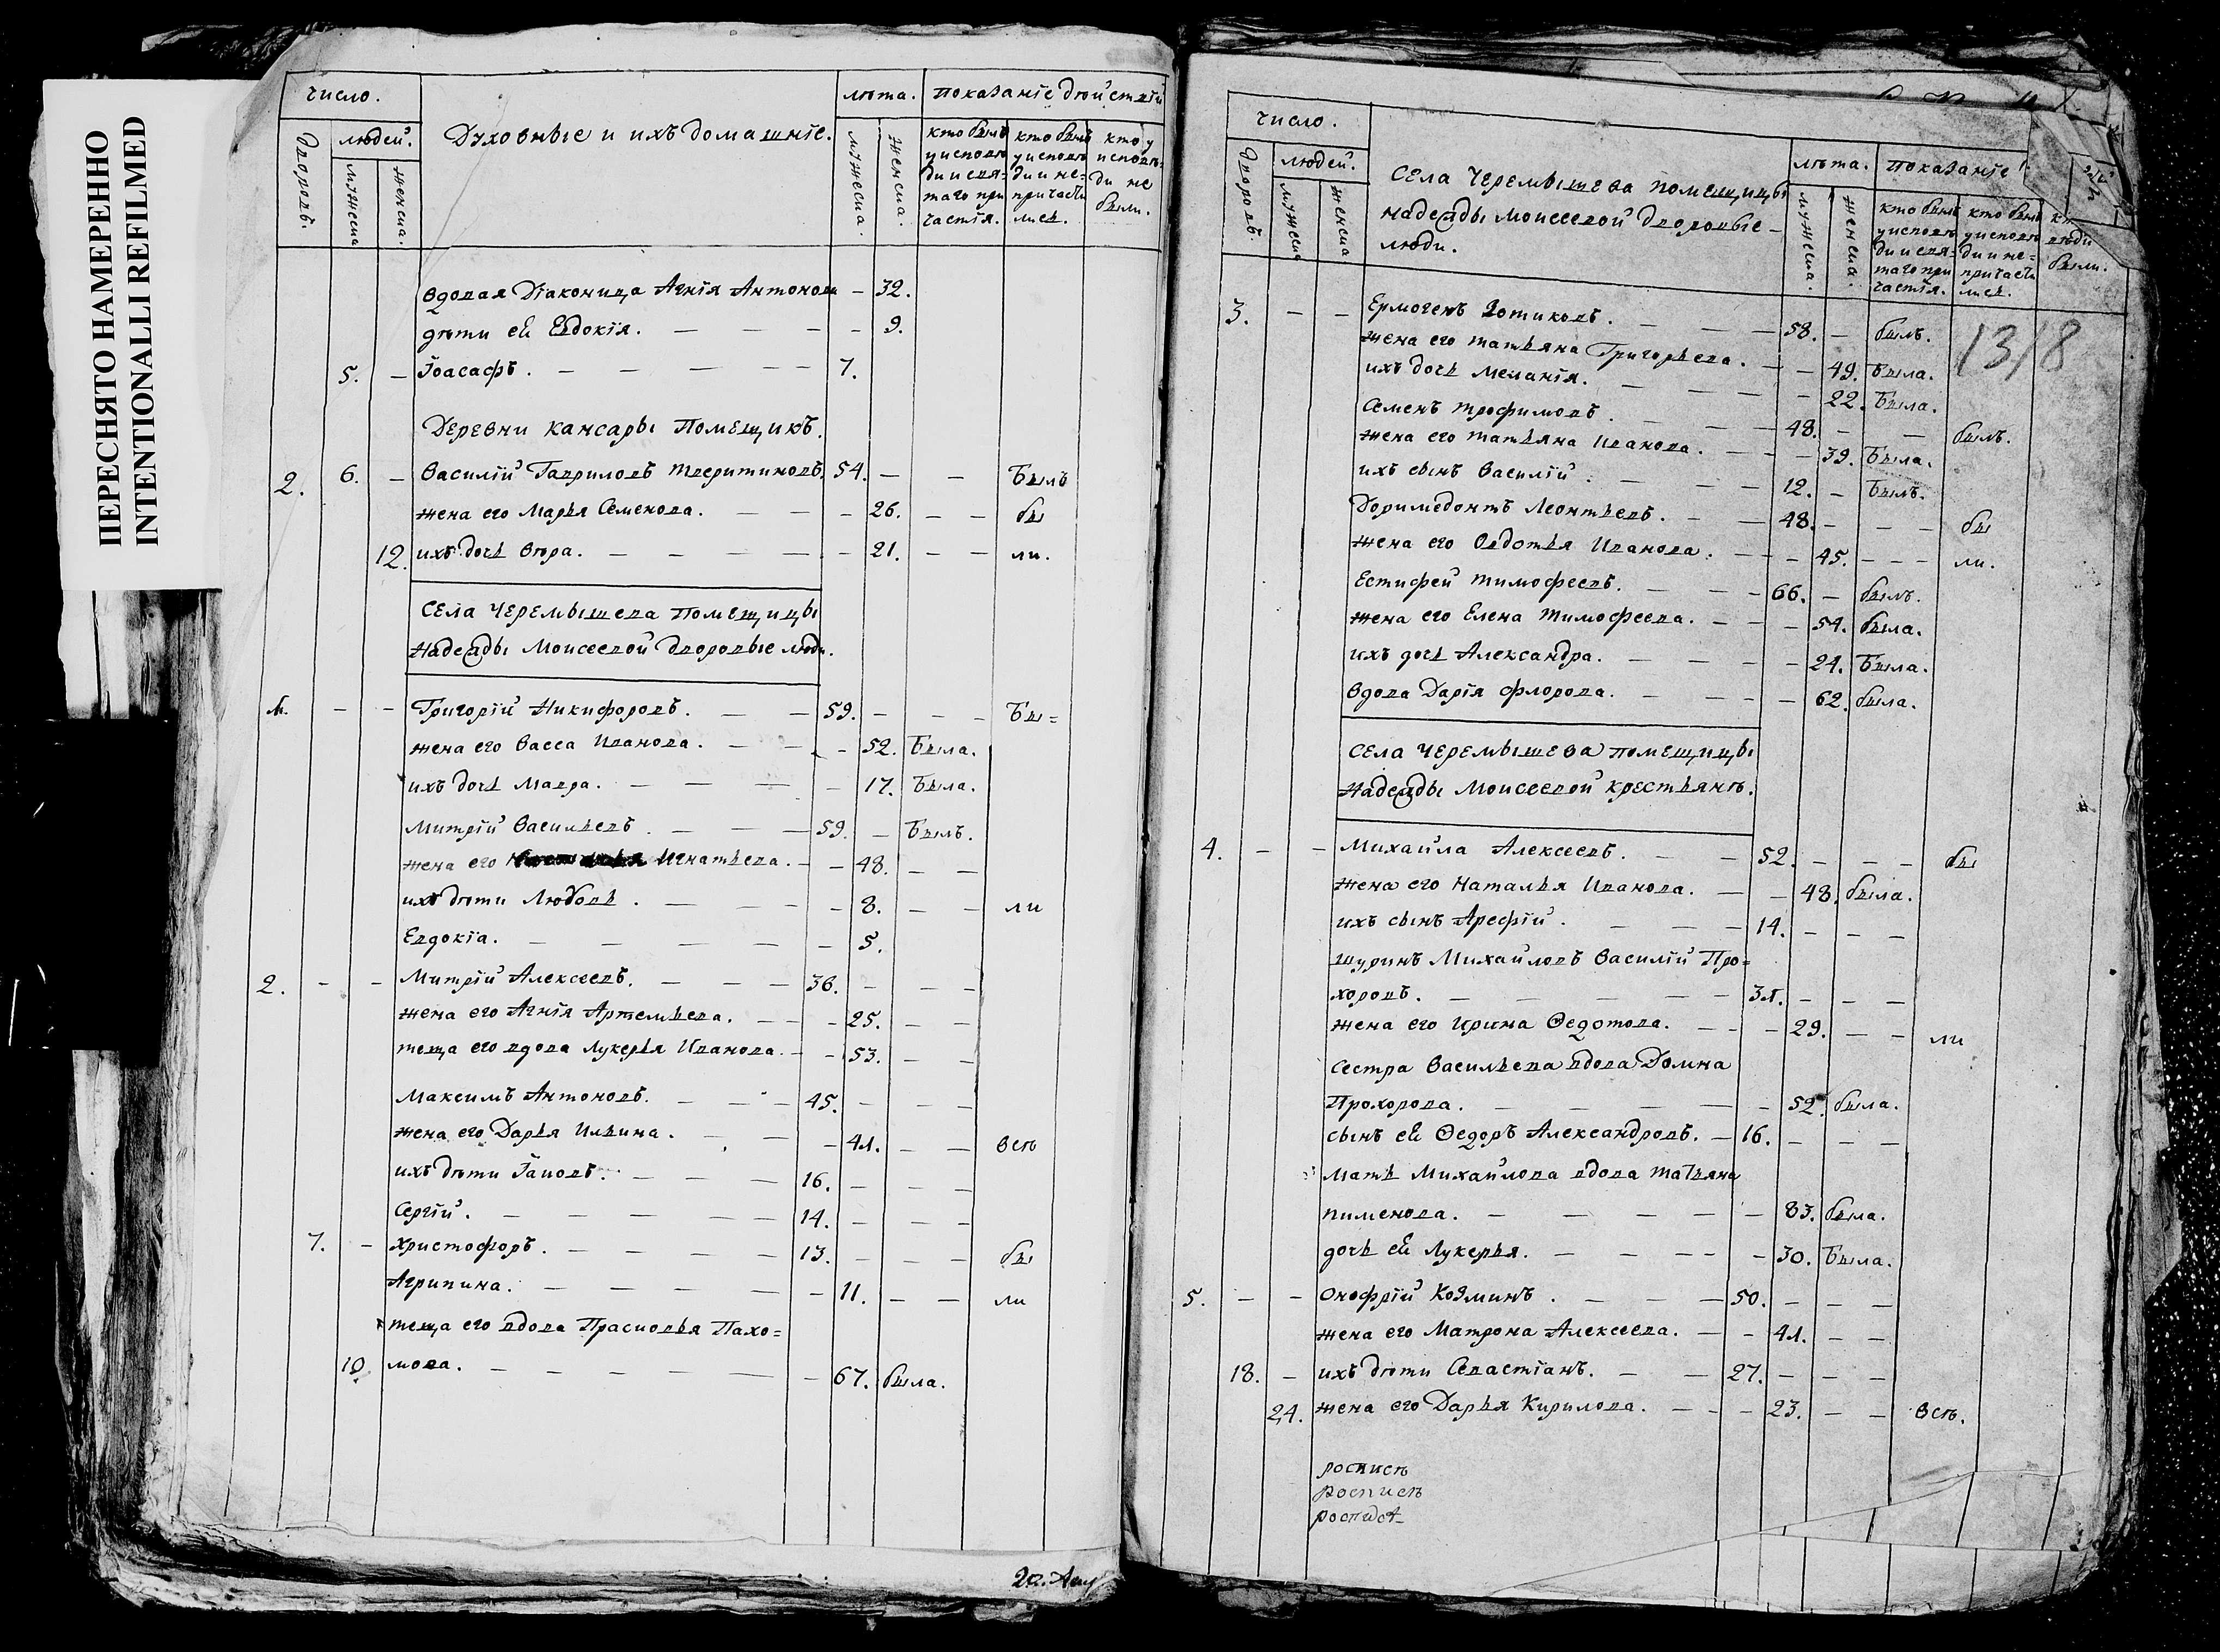 ПЕРЕСНЯТО НАМЕРЕННО
INTENTIONALLI REFILMED
число. Духовные и ихъ домашніе. лѣта. показаніе дѣйствій
дворовъ. людей. мужеска женска. мужеска. женска. кто былъ у исповѣди и святаго причастія. кто былъ у исповѣди и не причастились. кто у исповѣди не были.
вдовая Діаконица Агнія Антонова — 32.
дѣти ей Евдокія. — — — — 9.
5. — Іоасафъ. — — — — — 7.
Деревни Кансары Помещикъ.
2. 6. — Василій Гавриловъ Тверитиновъ. 54. — — Былъ
жена его Марья Семенова. — — — 26. — — бы
12. ихъ дочь Вѣра. — — — — — 21. — — ли.
Села Черемышева помещицы
Надежды Моисеевой дворовые люди.
1. — — Григорій Никифоровъ. — — 59. — — — Бы=
жена его Васса Иванова. — — — 52. Была.
ихъ дочь Мавра. — — — — 17. Была.
Митрій Васильевъ. — — — 59. — Былъ.
жена его Игнатьева. — — 48. — —
ихъ дѣти Любовь. — — — — 8. — — ли
Евдокіа. — — — — — 5.
2. — — Митрій Алексеевъ. — — — 36. — — —
жена его Агнія Артемьева. — — 25. — —
теща его вдова Лукерья Иванова. — — 53. — —
Максимъ Антоновъ. — — — 45. — — —
жена его Дарья Ильина. — — — 41. — — всѣ
ихъ дѣти Іаковъ. — — — 16. — — —
Сергій. — — — — — 14. — — —
7. — Христофоръ. — — — — 13. — — — бы
Агрипина. — — — — — — 11. — — ли
теща его вдова Прасковья Пахо=
10. мова. — — — — — — 67. была.
20. Авгу
число. Села Черемышева помещицы
надежды Моисеевой дворовые
люди. лѣта. показаніе
дворовъ. людей. мужеска женска. мужеска. женска. кто былъ у исповѣди и святаго причастія. кто былъ у исповѣди и не причастились. были.
3. — — Ермогенъ Зотиковъ. — — — 58. — былъ.
1318
жена его Татьяна Григорьева. — — 49. Была.
ихъ дочь Меланія. — — — — 22. Была.
Семенъ Трофимовъ. — — — 48. — — былъ.
жена его Татьяна Иванова. — — 39. Была.
ихъ сынъ Василій. — — — 12. — Былъ.
Доримедонтъ Леонтьевъ. — — 48. — — — бы
жена его Овдотья Иванова. — — 45. — — — ли.
Естифей Тимофеевъ. — — — 66. — былъ.
жена его Елена Тимофеева. — — — 54. была.
ихъ дочь Александра. — — — — 24. Была.
Вдова Дарія Флорова. — — — — 62. была.
Села Черемышева помещицы
Надежды Моисеевой крестьянѣ.
4. — — Михаила Алексеевъ. — — 52. — — — бы
жена его Наталья Иванова. — — 48. была.
ихъ сынъ Арефій. — — — 14. — — —
шуринъ Михаиловъ Василій Про=
хоровъ. — — — — — — 31. — — —
жена его Ирина Ѳедотова. — — — 29. — — ли
Сестра Васильева вдова Домна
Прохорова. — — — — — 52. была.
сынъ ей Ѳедоръ Александровъ. — 16. — — —
Мать Михайлова вдова Татьяна
пименова. — — — — — — 83. была.
дочь ей Лукерья. — — — — — 30. Была.
5. — — Онофрій Козминъ. — — — 50. — — —
жена его Матрона Алексеева. — — 41. — —
18. — ихъ дѣти Севастіанъ. — — 27. — — —
24. жена его Дарья Кирилова. — — — 23. — — всѣ.
роспись
роспись